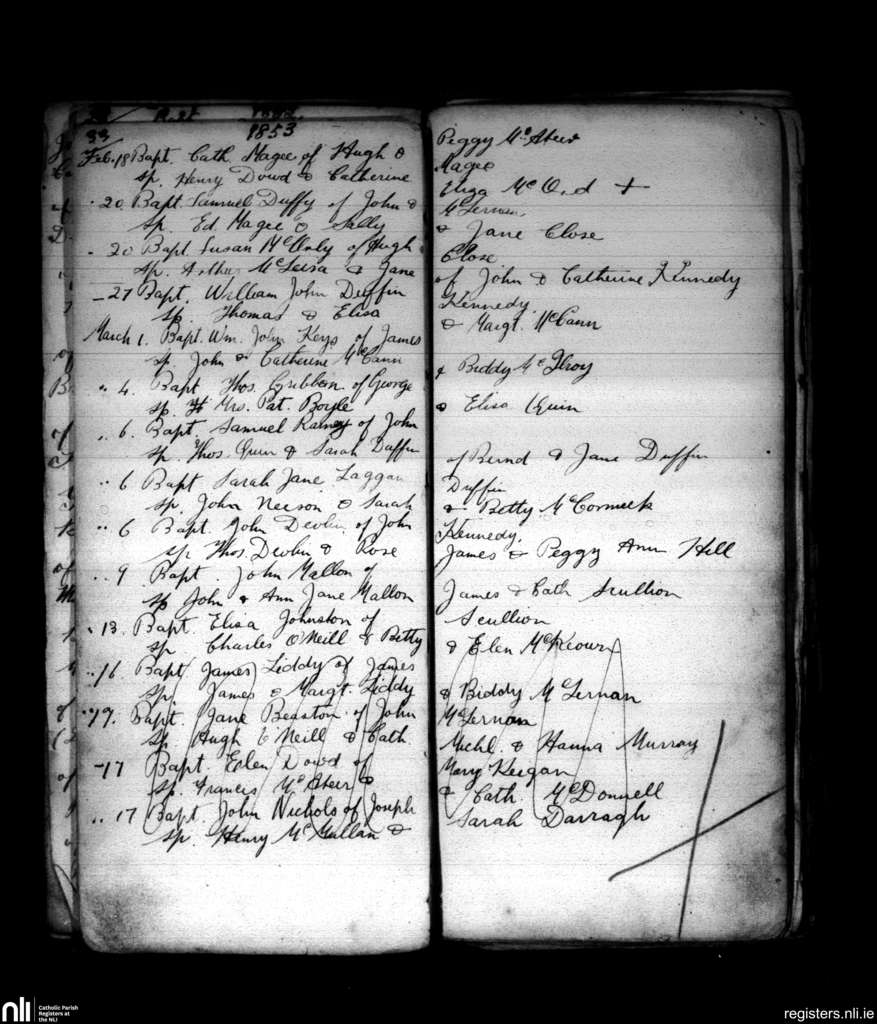 1853
33
Feb. 18 Bapt. Cath. Magee of Hugh & Peggy McAteer
sp. Henry Dowd & Catherine Magee
" 20 Bapt. Samuel Duffy of John & Eliza
sp. Ed. Magee & Sally McLernan
- 20 Bapt. Susan of Hugh & Jane Close
sp. Arthur & Jane Close
- 27 Bapt. William John Duffin of John & Catherine Kennedy
sp. Thomas & Elisa Kennedy
March 1. Bapt. Wm. John Keys of James & Margt. McCann
sp. John & Catherine McCann
" 4. Bapt Thos. Gribbin of George & Biddy McIlroy
sp. Mrs. Pat. Boyle
" 6. Bapt. Samuel Rainey of John & Elisa Quin
sp. Thos. Quin & Sarah Duffin
" 6 Bapt Sarah Jane Laggan of Bernd & Jane Duffin
sp. John Neeson & Sarah Duffin
" 6 Bapt. John Devlin of John & Betty McCormick
sp. Thos. Devlin & Rose Kennedy.
" 9 Bapt. John Mallon of James & Peggy Ann Hill
sp John & Ann Jane Mallon
" 13. Bapt. Elisa Johnston of James & Cath Scullion
sp Charles O'Neill & Betty Scullion
" 16 Bapt James Liddy of James & Elen McKeown
sp. James & Margt. Liddy
" 19. Bapt. Jane Beaston of John & Biddy McLernan
sp. Hugh O'Neill & Cath. McLernan
- 17 Bapt Elen Dowd of Michl. & Hanna Murray
sp. Francis McAteer & Mary Keegan
" 17 Bapt. John Nichols of Joseph & Cath. McDonnell
sp. Henry McMullan & Sarah Darragh
nli
Catholic Parish
Registers at
the NLI
registers.nli.ie